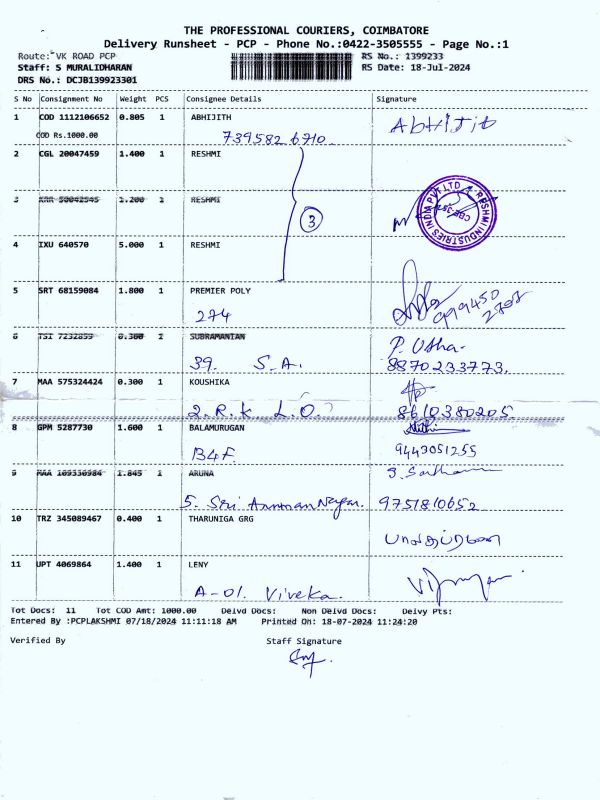 THE PROFESSIONAL COURIERS, COIMBATORE
Delivery Runsheet - PCP - Phone No.:0422-3505555 - Page No.:1
Route: VK ROAD PCP RS No.: 1399233
Staff: S MURALIDHARAN RS Date: 18-Jul-2024
DRS No.: DCJB139923301
S No Consignment No Weight PCS Consignee Details Signature
1 COD 1112106652 0.805 1 ABHIJITH Abhijith
COD Rs.1000.00 739582 6710
2 CGL 20047459 1.400 1 RESHMI
3 1.200 1 RESHMI
3
RESHMI INDUSTRIES INDIA PVT LTD
4 IXU 640570 5.000 1 RESHMI
5 SRT 68159084 1.800 1 PREMIER POLY
274 999450
2708
6 TSI 7232859 0.300 1 SUBRAMANIAN P. Usha
39. S.A. 8870233773.
7 MAA 575324424 0.300 1 KOUSHIKA
2. R.K L.O. 8610380205
8 GPM 5287730 1.600 1 BALAMURUGAN
B4F. 9443051255
9 MAA 1.845 1 ARUNA
5. Sri Nagar. 9751810652
10 TRZ 345089467 0.400 1 THARUNIGA GRG
11 UPT 4069864 1.400 1 LENY
A-01. Viveka.
Tot Docs: 11 Tot COD Amt: 1000.00 Delvd Docs: Non Delvd Docs: Delvy Pts:
Entered By :PCPLAKSHMI 07/18/2024 11:11:18 AM Printed On: 18-07-2024 11:24:20
Verified By Staff Signature